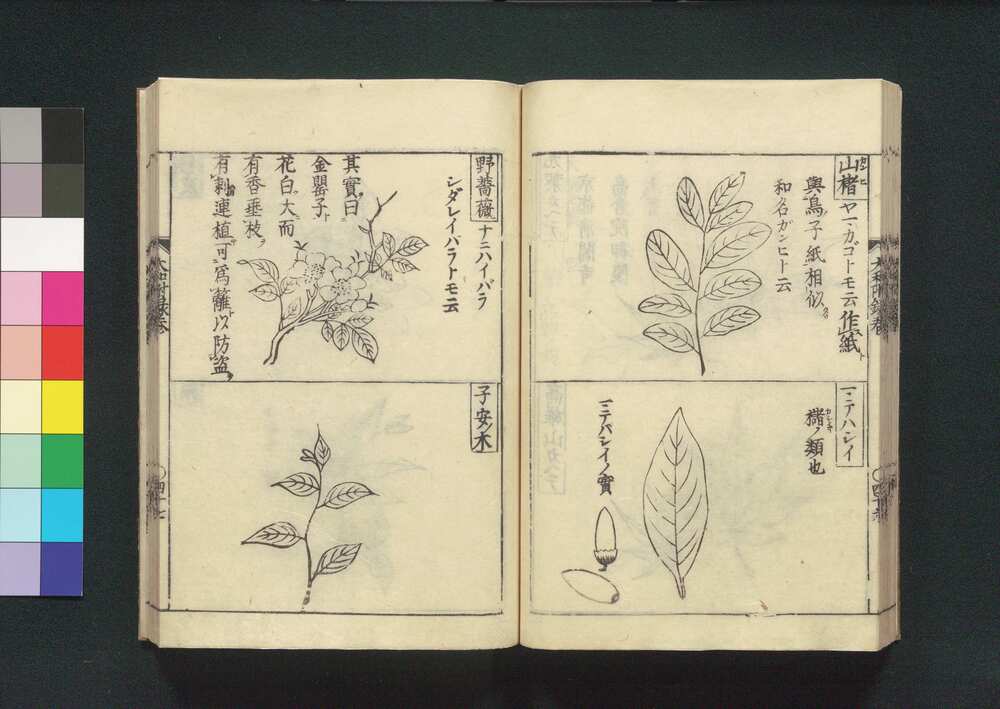 山楮 ヤマカゴトモ云作紙
與鳥子紙相似
和名ガンヒト云
マテハシイ
櫧ノ類也
マテバシイノ實
野薔薇 ナニハイバラ
シダレイバラトモ云
其實曰
金罌子
花白大而
有香垂枝
有刺連植可爲籬以防盗
子安ノ木